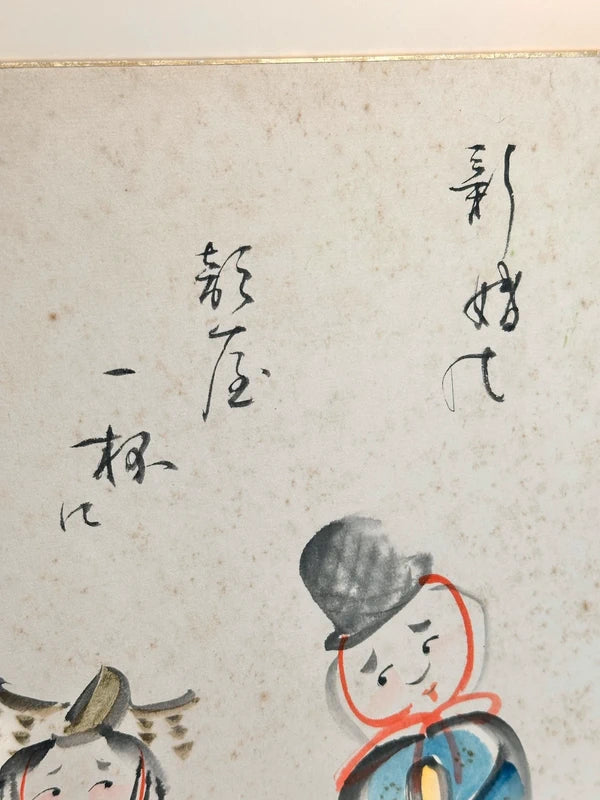 新婚の
部屋
一杯に